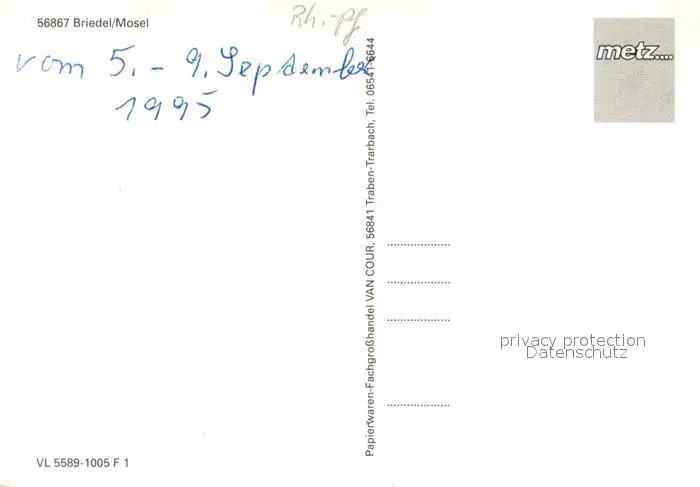 56867 Briedel/Mosel
Rh.-Pf
vom 5. - 9. September
1995
metz....
Papierwaren-Fachgroßhandel VAN COUR, 56841 Traben-Trarbach, Tel. 06541-6644
privacy protection
Datenschutz
VL 5589-1005 F 1